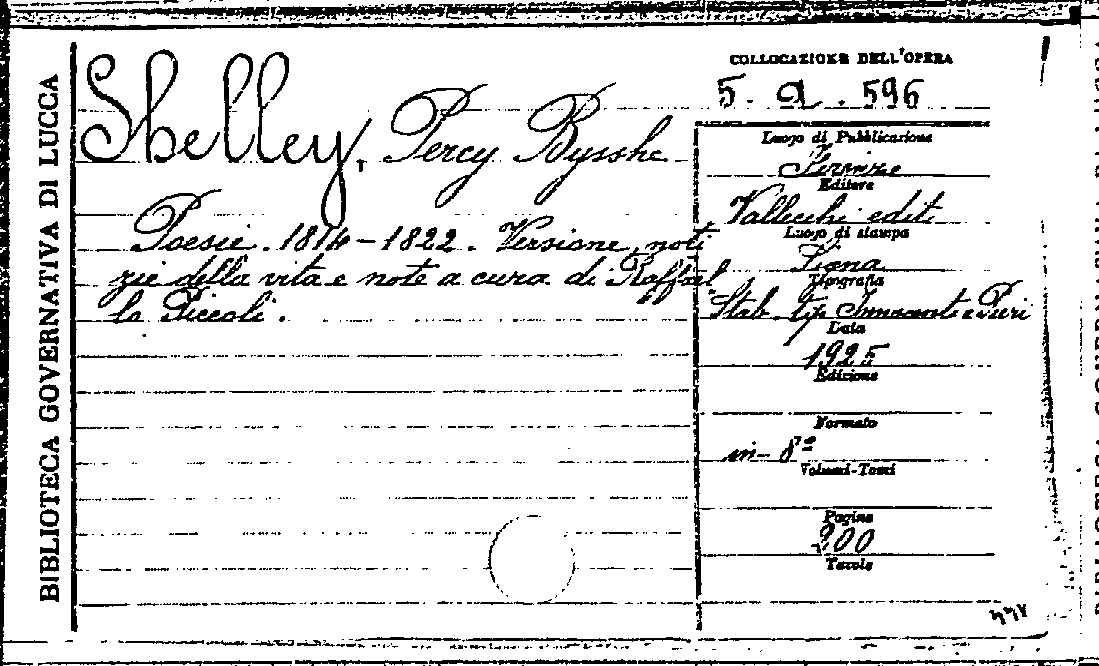 BIBLIOTECA GOVERNATIVA DI LUCCA
Shelley, Percy Bysshe
Poesie. 1814-1822. Versione, noti
zie della vita e note a cura di Raffael
lo Piccoli.
COLLOCAZIONE DELL'OPERA
5. a. 596
Luogo di Pubblicazione
Firenze
Editore
Vallecchi edit.
Luogo di stampa
Signa
Tipografia
Stab. tip. Innocenti e Pieri
Data
1925
Edizione
Formato
in-8º
Volumi-Tomi
Pagine
300
Tavole